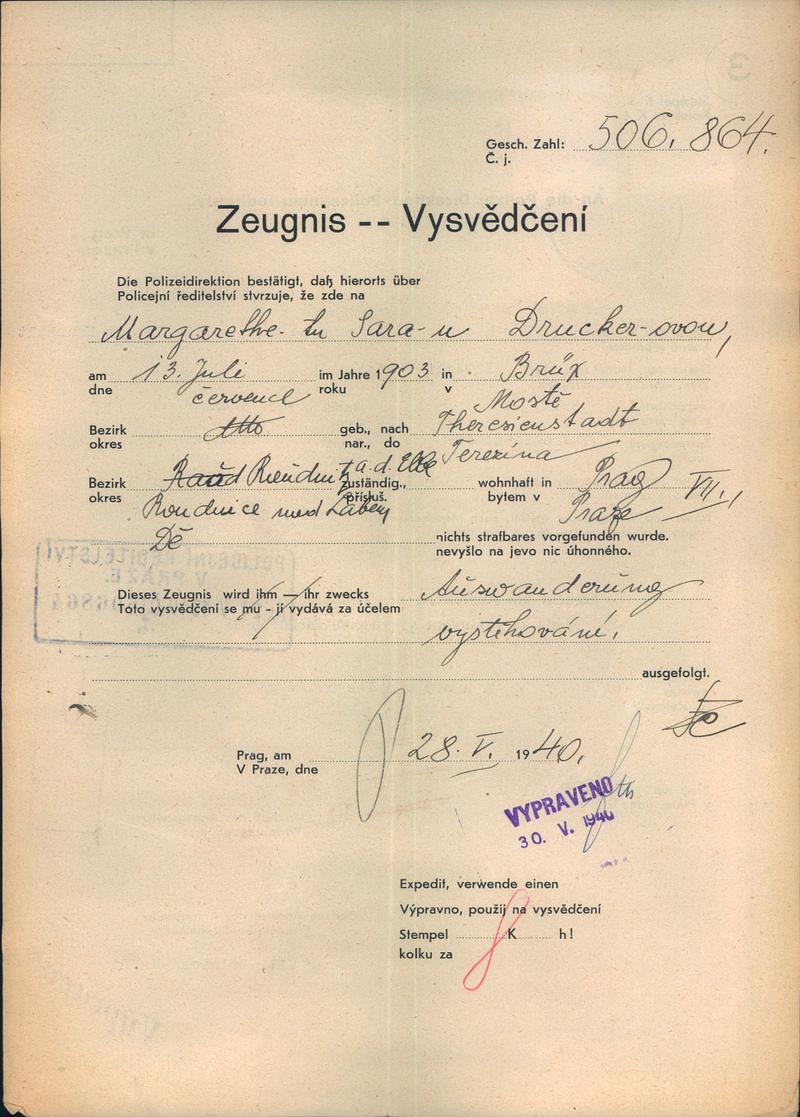 Gesch. Zahl: 506.864.
Č. j.
Zeugnis -- Vysvědčení
Die Polizeidirektion bestätigt, daß hierorts über
Policejní ředitelství stvrzuje, že zde na
Margarethe-tu Sara-u Drucker-ovou,
am 13. Juli im Jahre 1903 in Brüx
dne červenec roku v Mostě
Bezirk dtto geb., nach Theresienstadt
okres nar., do Terezína
Bezirk Raud Roudnitz a.d. Elbe zuständig., wohnhaft in Prag VII.,
okres Roudnice nad Labem přísluš. bytem v Praze
Dě nichts strafbares vorgefunden wurde.
nevyšlo na jevo nic úhonného.
Dieses Zeugnis wird ihm — ihr zwecks Auswanderung
Toto vysvědčení se mu - jí vydává za účelem
vystěhování.
ausgefolgt.
Prag, am 28. V. 1940.
V Praze, dne
VYPRAVENO
30. V. 1940
Expedit, verwende einen
Výpravno, použij na vysvědčení
Stempel K h!
kolku za